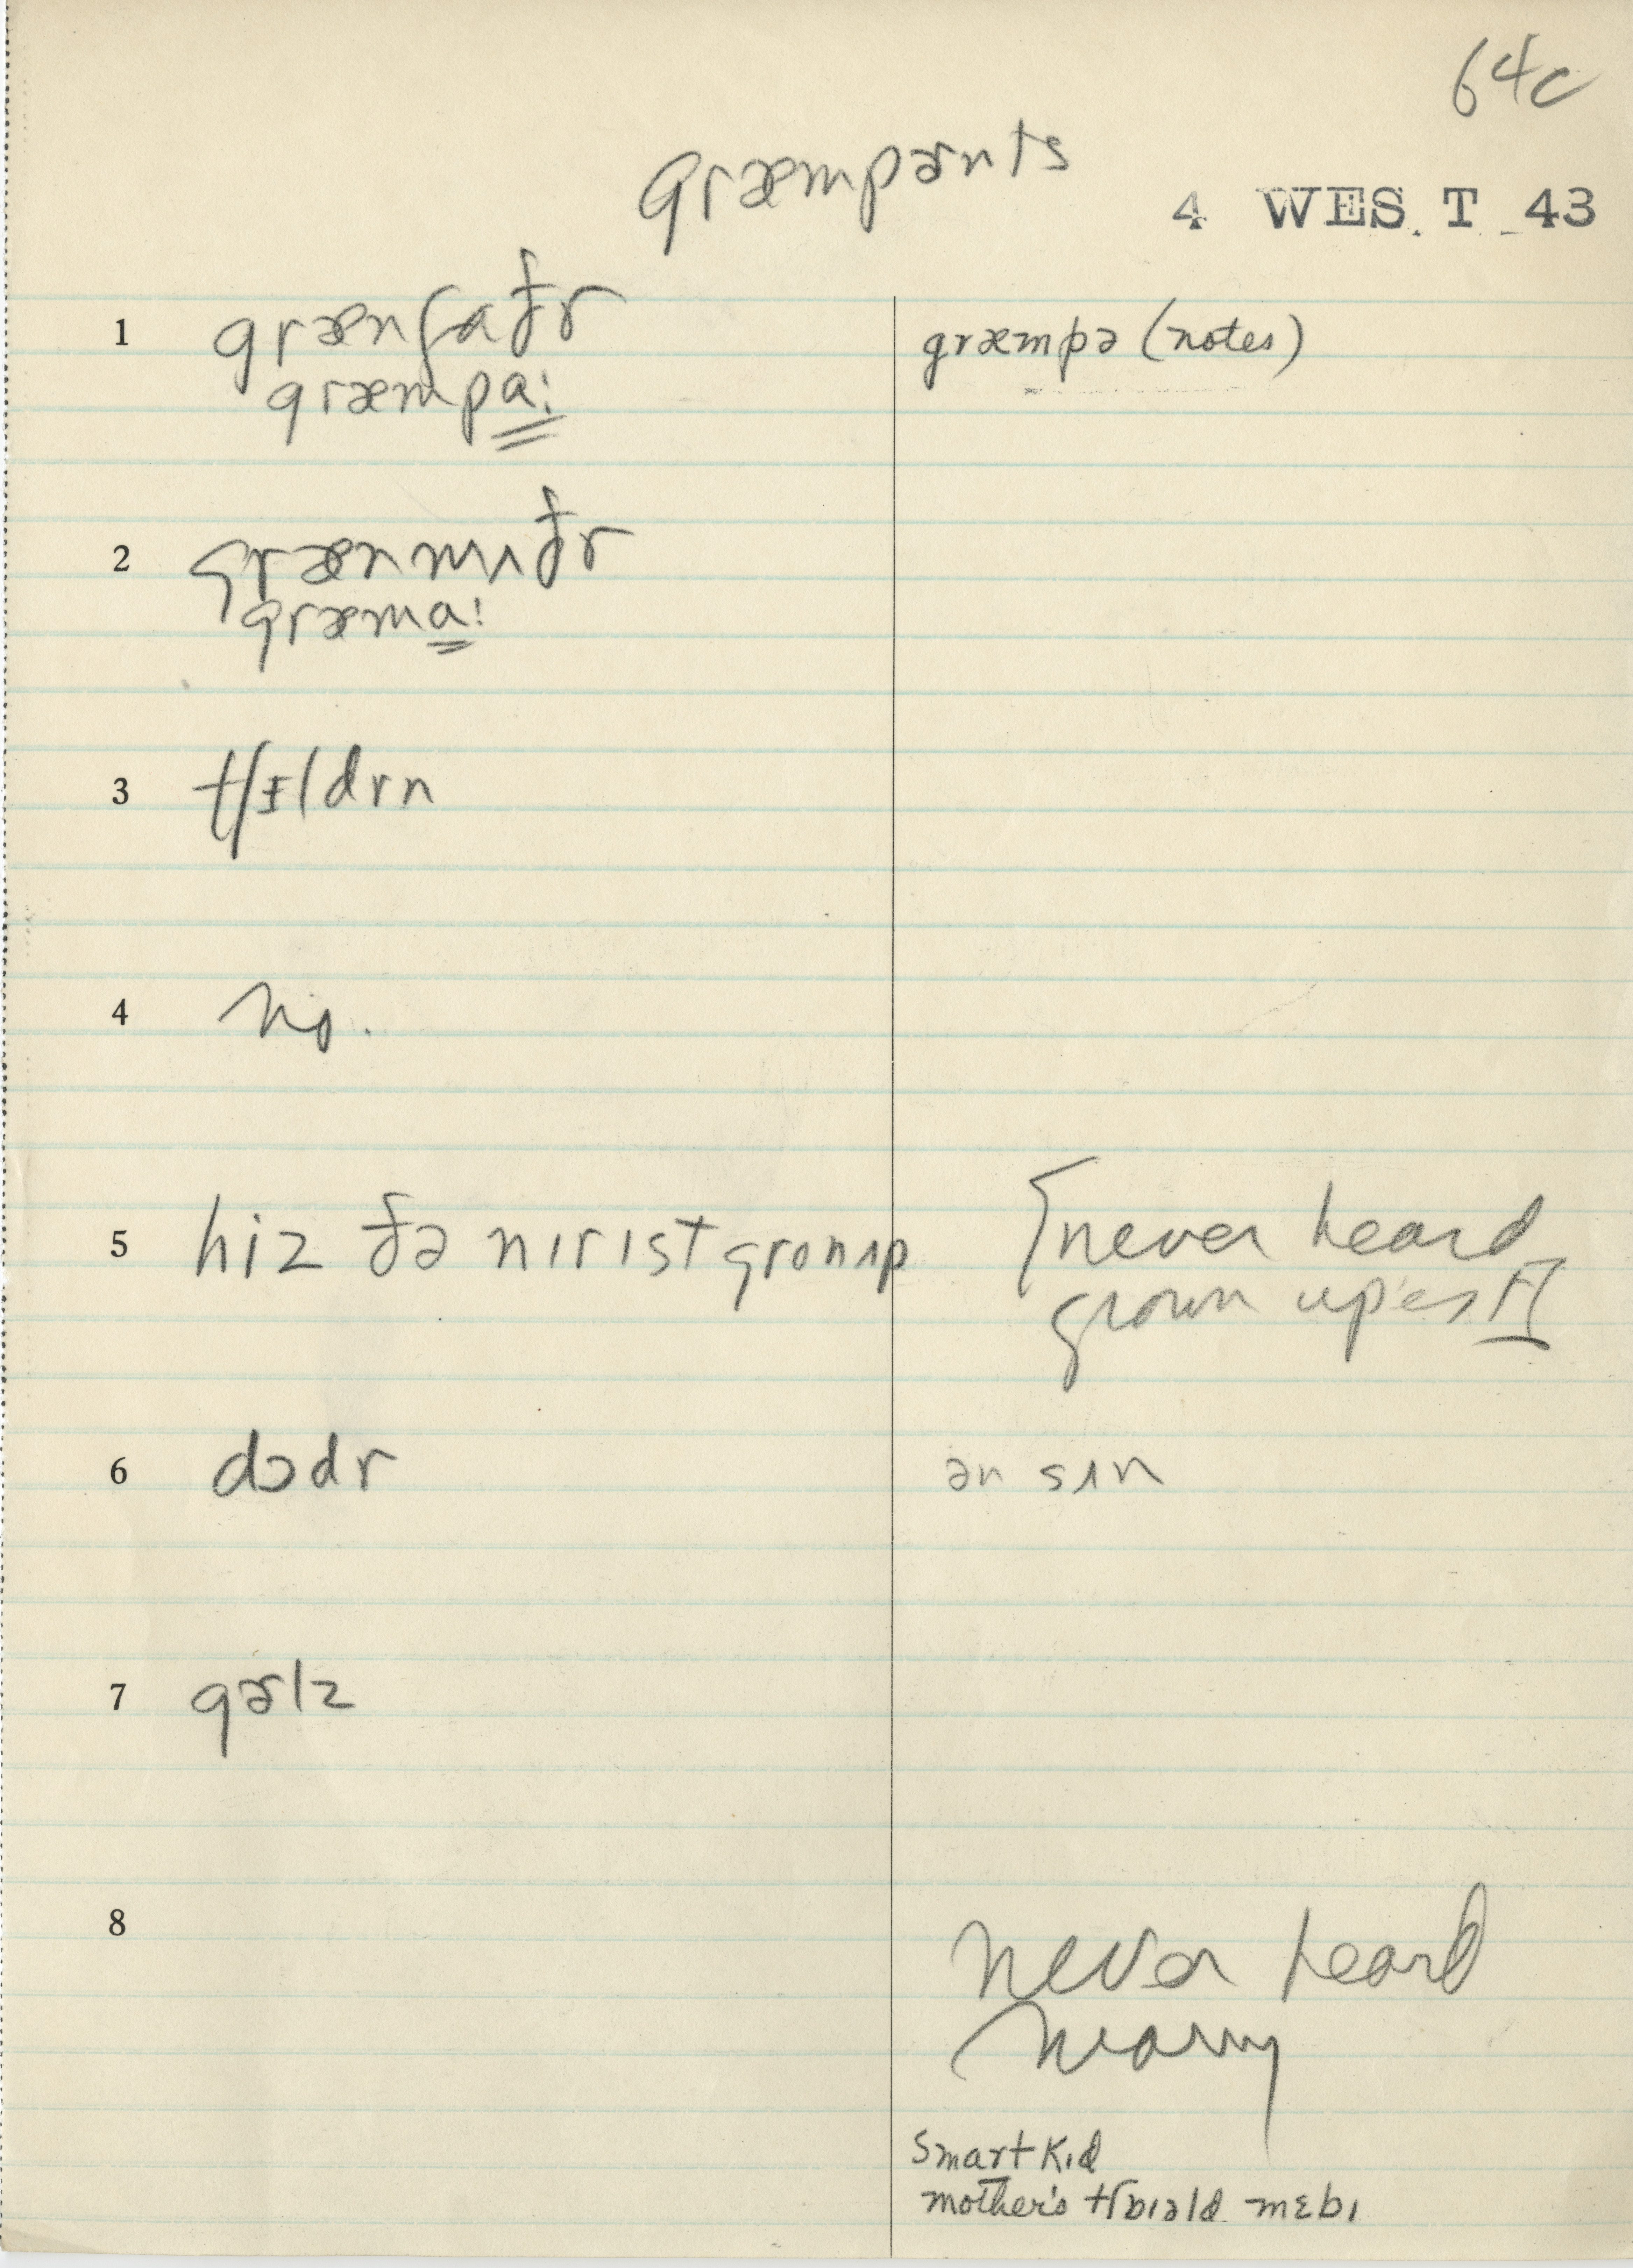 64c
græmpɚnts
4 WES. T 43
1 grænfaðr græmpə (notes)
græmpa:
2 grænmʌðr
græma:
3 tʃɪldrn
4 no.
5 hiz ðə nɪrɪst gronʌp [never heard
grown up'est]
6 dɔdr ən sʌn
7 gɚlz
8
never heard
Smart Kid
mother's mɛbɪ